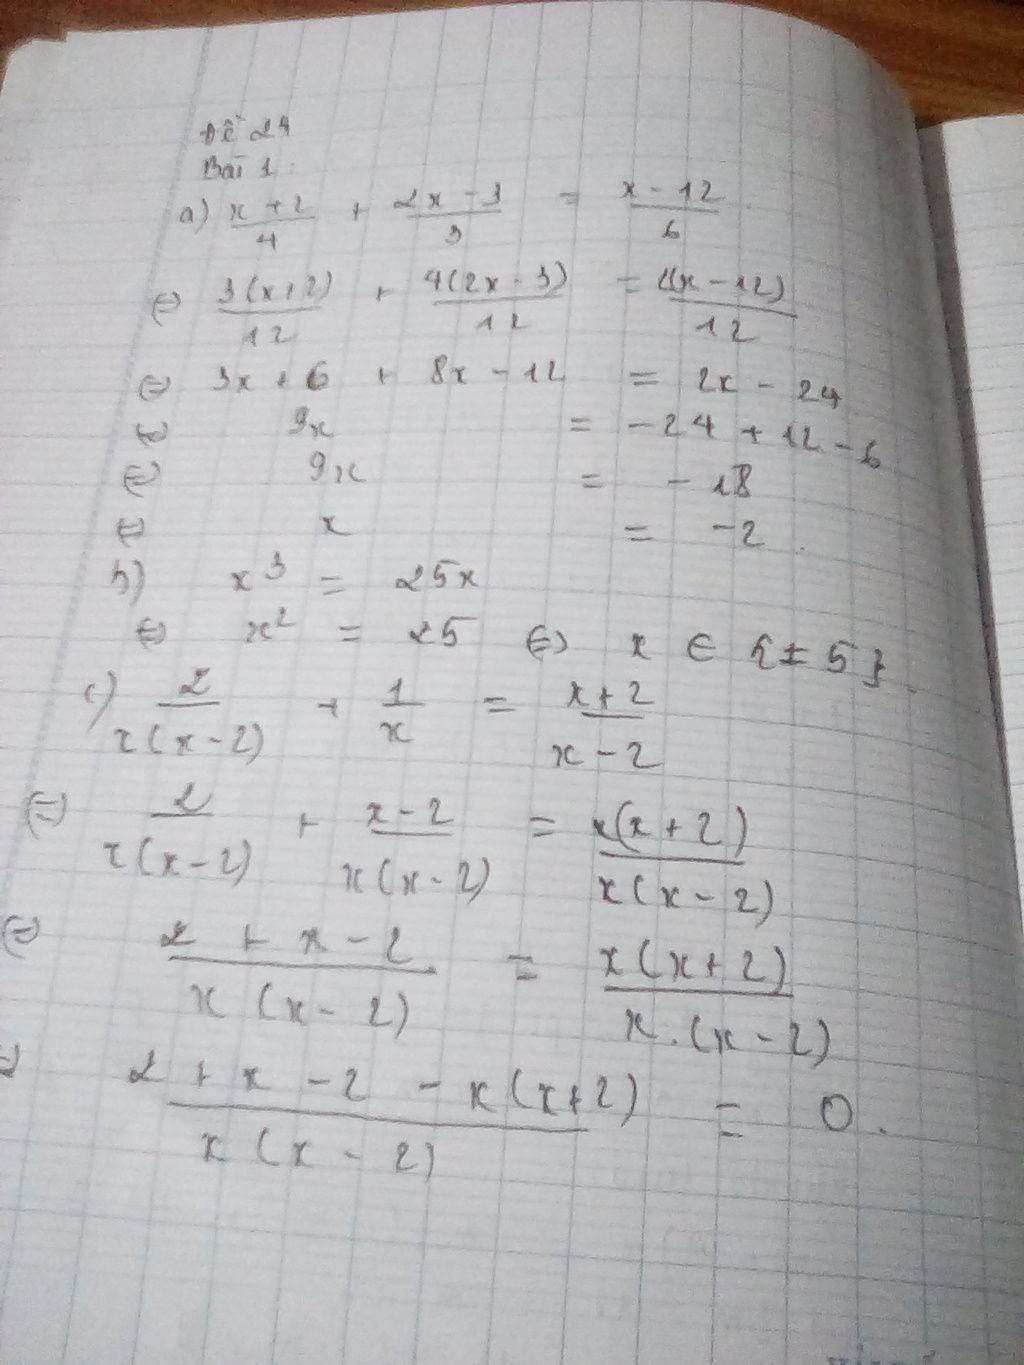 Đề 24
Bài 1
a) x+2/4 + 2x-3/3 = x-12/6
⇔ 3(x+2)/12 + 4(2x-3)/12 = 2(x-12)/12
⇔ 3x + 6 + 8x - 12 = 2x - 24
⇔ 9x = -24 + 12 - 6
⇔ 9x = -18
⇔ x = -2.
b) x³ = 25x
⇔ x² = 25 ⇔ x ∈ {±5}.
c) 2/x(x-2) + 1/x = x+2/x-2
⇔ 2/x(x-2) + x-2/x(x-2) = x(x+2)/x(x-2)
⇔ 2+x-2/x(x-2) = x(x+2)/x.(x-2)
⇔ 2+x-2-x(x+2)/x(x-2) = 0.